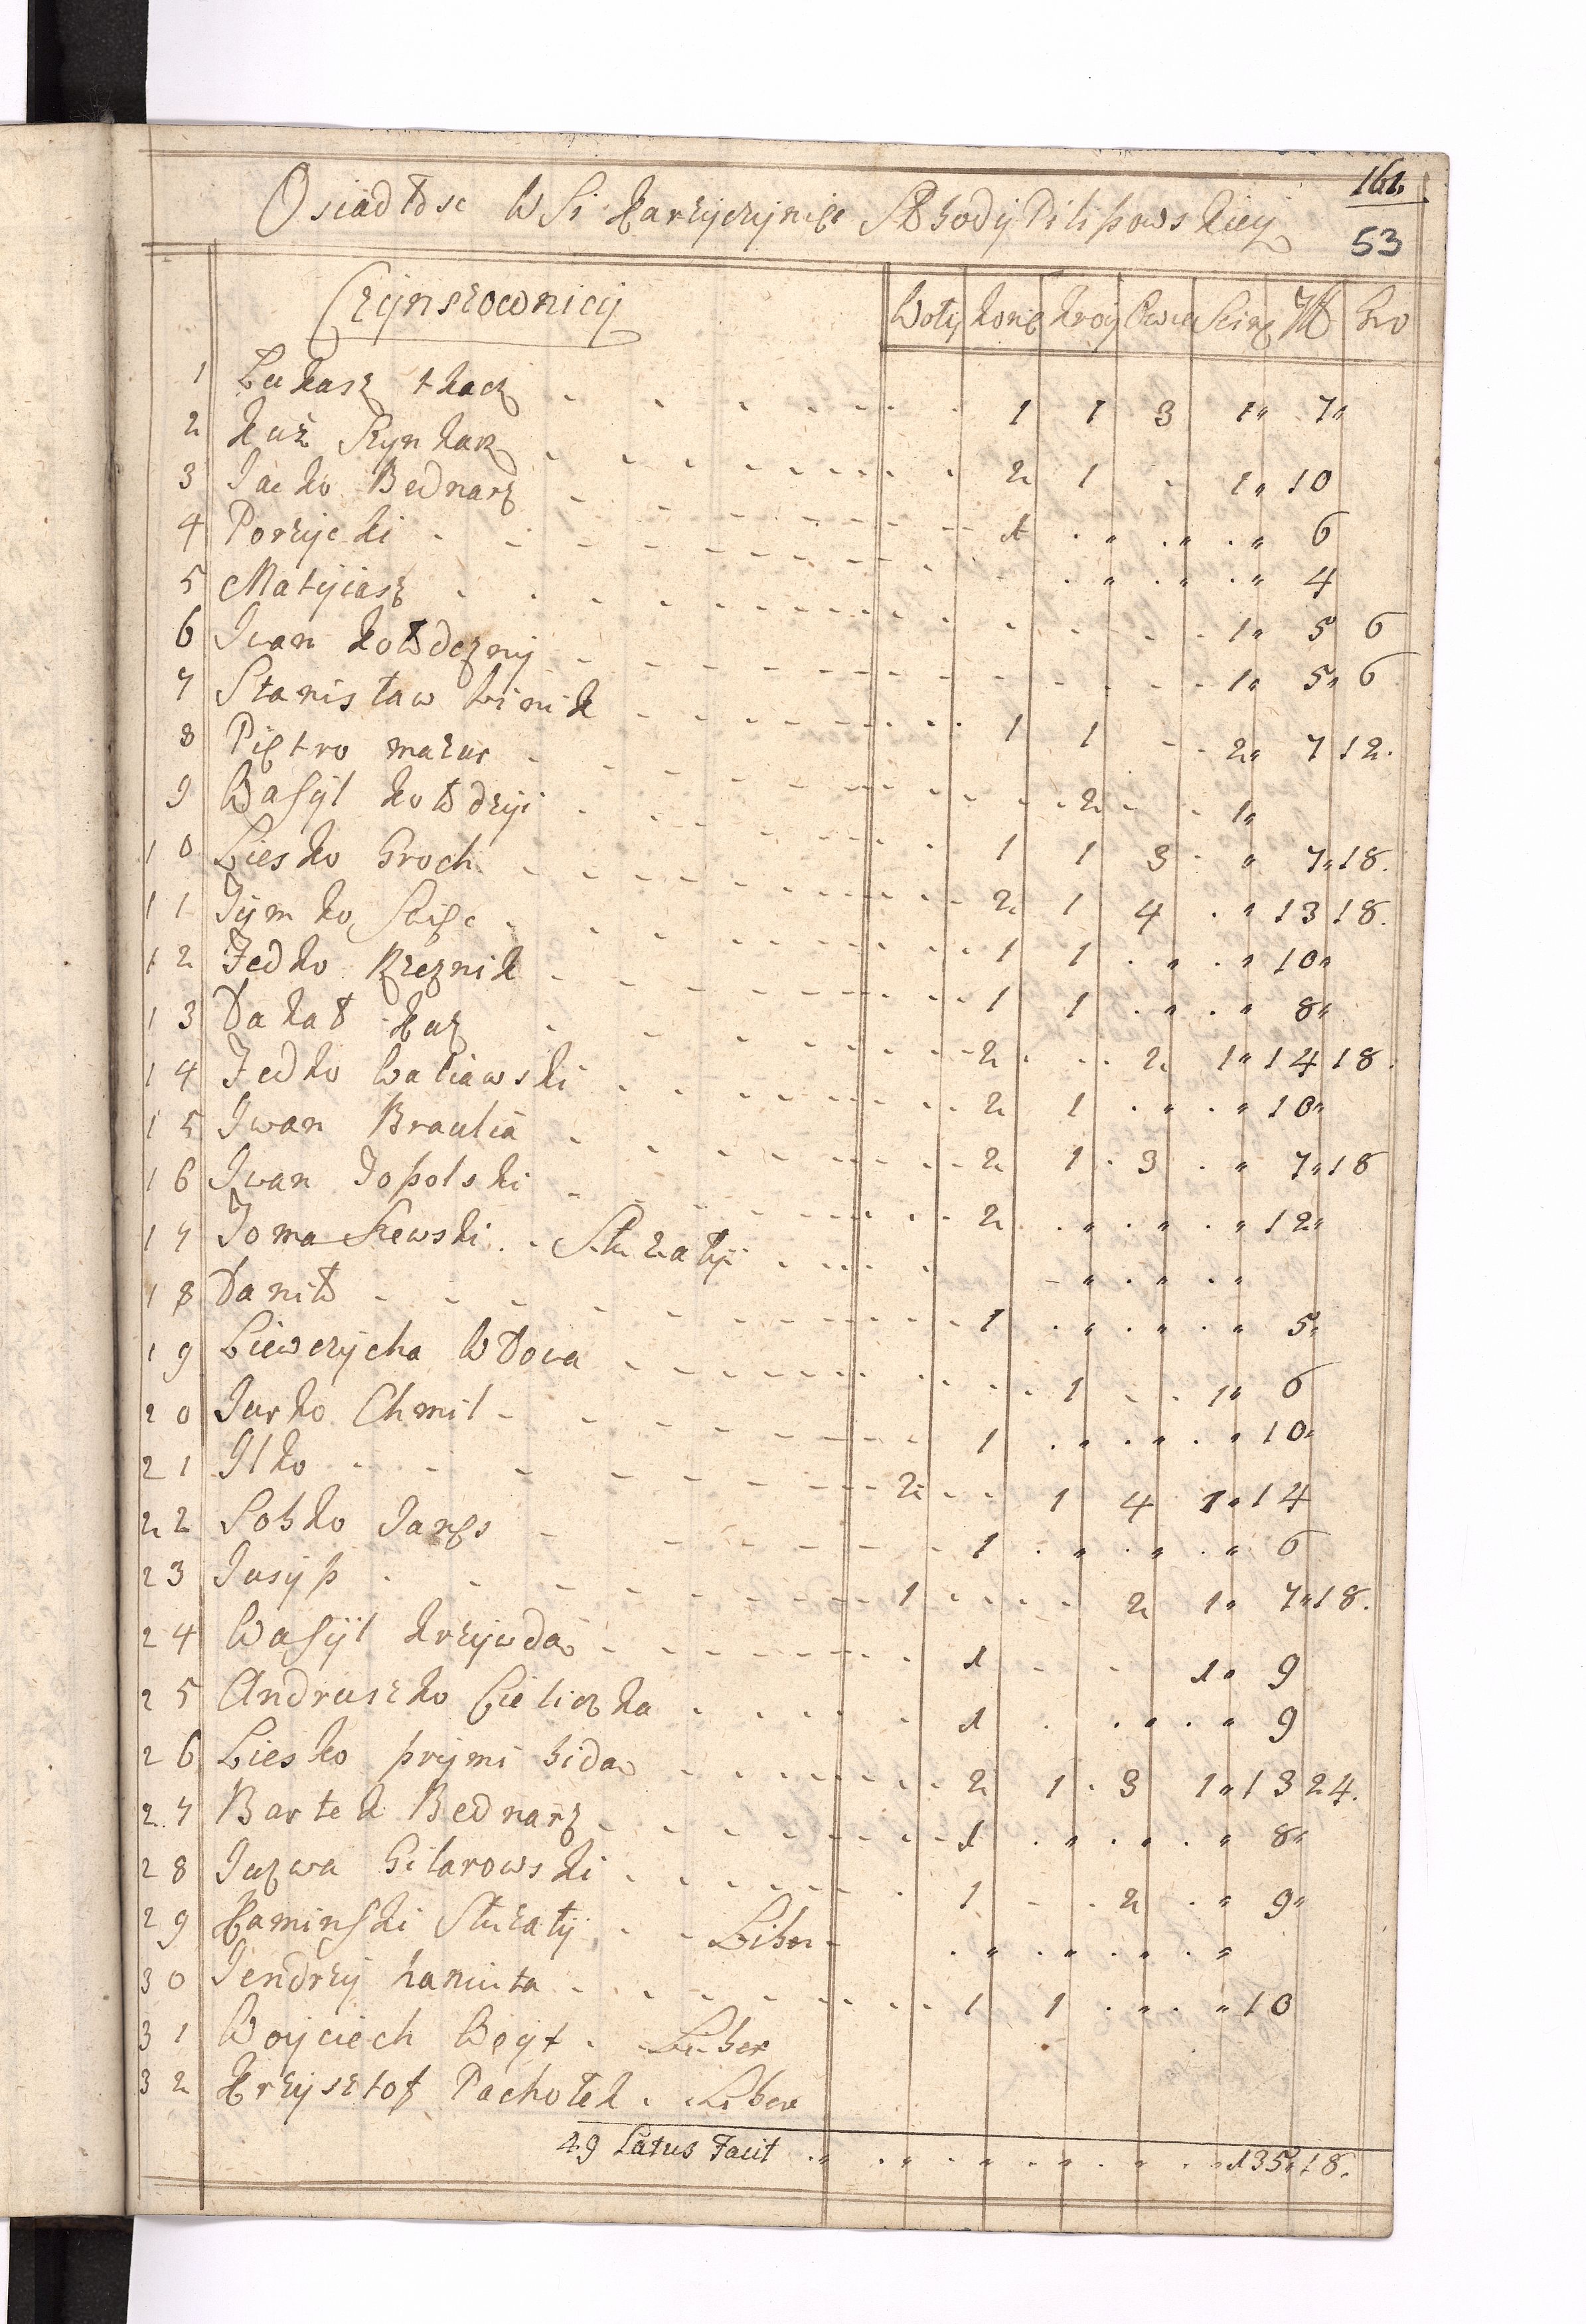 161.
53
Osiadłość WSi Karzyczyniec Słbody Pilipowskiey
Czynszownicy Woły konie krow Owiec Scinz Zł Gro
1 Łukasz tkacz 1 1 3 1 7
2 kuź Szynkarz 2 1 1 10
3 Jacko Bednarz 1 6
4 Porzycki 4
5 Matyiasz 1 5 6
6 Iwan kołodezny 1 5 6
7 Stanisław winik 1 1 2 7 12.
8 Piętro mazur 2 1
9 Wasyl kołodziy 1 1 3 7 18.
10 Liesko Groch 2 1 4 13 18.
11 Tymko 1 1 10
12 Fedko Rzeznik 1 1 8
13 Dakał kuz 2 2 1 14 18.
14 Fedko waliawski 2 1 10
15 Iwan Braulia 2 1 3 7 18
16 Iwan Topolski 2 12
17 Tomaszewski Służały
18 Daniło 1 5
19 Liewczycha Wdowa 1 1 6
20 Jurko Chmil 1 10
21 Ilko 2 1 4 1 14
22 Sobko Janęs 1 6
23 Jusyp 1 2 1 7 18.
24 Wasyl krzywda 1 1 9
25 Andruszko Cieliczka 1 9
26 Liesko prymi bida 2 1 3 1 13 24.
27 Bartek Bednarz 1 8
28 Juzwa Gilarowski 1 2 9
29 Kaminski Służały Liber
30 Jendrzy kaniuta 1 1 10
31 Woyciech Woyt Liber
32 Krzysztof Pachołek Liber
29 Latus Facit 135 18.